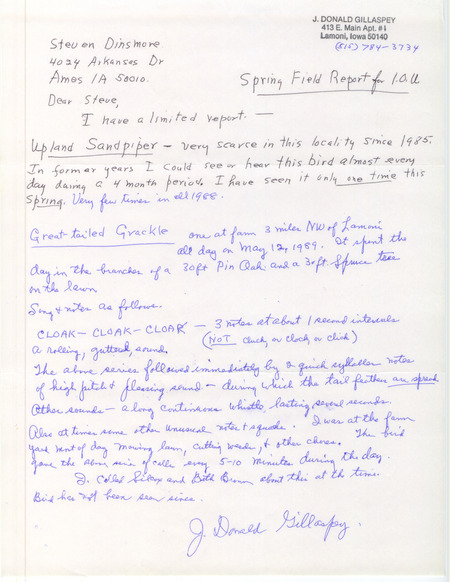 J. DONALD GILLASPEY
413 E. Main Apt. #1
Lamoni, Iowa 50140
(515) 784-3734
Steven Dinsmore
4024 Arkansas Dr
Ames IA 50010.
Spring Field Report for I.O.U
Dear Steve,
I have a limited report. —
Upland Sandpiper — very scarce in this locality since 1985.
In former years I could see or hear this bird almost every
day during a 4 month period. I have seen it only one time this
Spring. Very few times in all 1988.
Great-tailed Grackle one at farm 3 miles NW of Lamoni
all day on May 12, 1989. It spent the
day in the branches of a 30ft Pin Oak and a 30ft. Spruce tree
on the lawn
Song & notes as follows.
CLOAK — CLOAK — CLOAK — 3 notes at about 1 second intervals
a rolling, guttural, sound. (NOT cluck, or clock, or click)
The above series followed immediately by a quick syllable notes
of high pitch & pleasing sound — during which the tail feathers are spread
Other sounds — a long continuous whistle, lasting several seconds
Also at times some other unusual notes & squeaks. I was at the farm
yard most of day mowing lawn, cutting weeds, & other chores. The bird
gave the above series of calls every 5-10 minutes during the day.
I called Silcox and Beth Brown about this at the time.
Bird has not been seen since.
J. Donald Gillaspey.